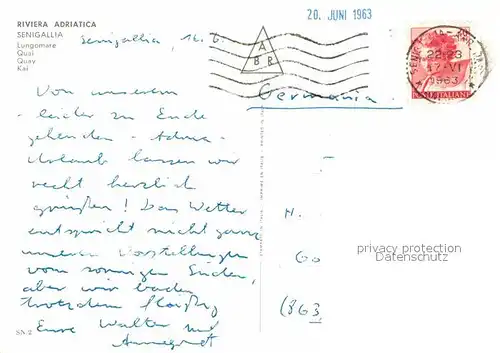 RIVIERA ADRIATICA
SENIGALLIA
Lungomare
Quai
Quay
Kai
Senigallia, 16.6.
20. JUNI 1963
A
B R
22-23
17-VI
1963
POSTE ITALIANE
Germania
Von unserem
leider zu Ende
gehenden - Adria-
Urlaub lassen wir
recht herzlich
grüßen! Das Wetter
entspricht nicht ganz
unseren Vorstellungen
vom sonnigen Süden,
aber wir baden
trotzdem fleißig
Eure Walter und
Annegret
H.
60
(863
privacy protection
Datenschutz
SN/2